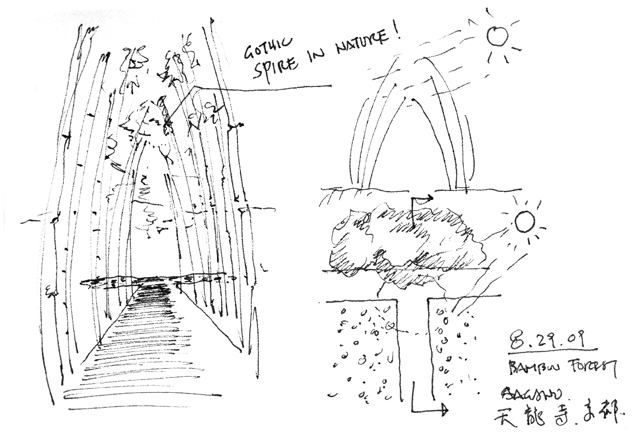 GOTHIC
SPIRE IN NATURE!
8.29.09
BAMBOO FOREST
SAGANO.
天龍寺.京都.